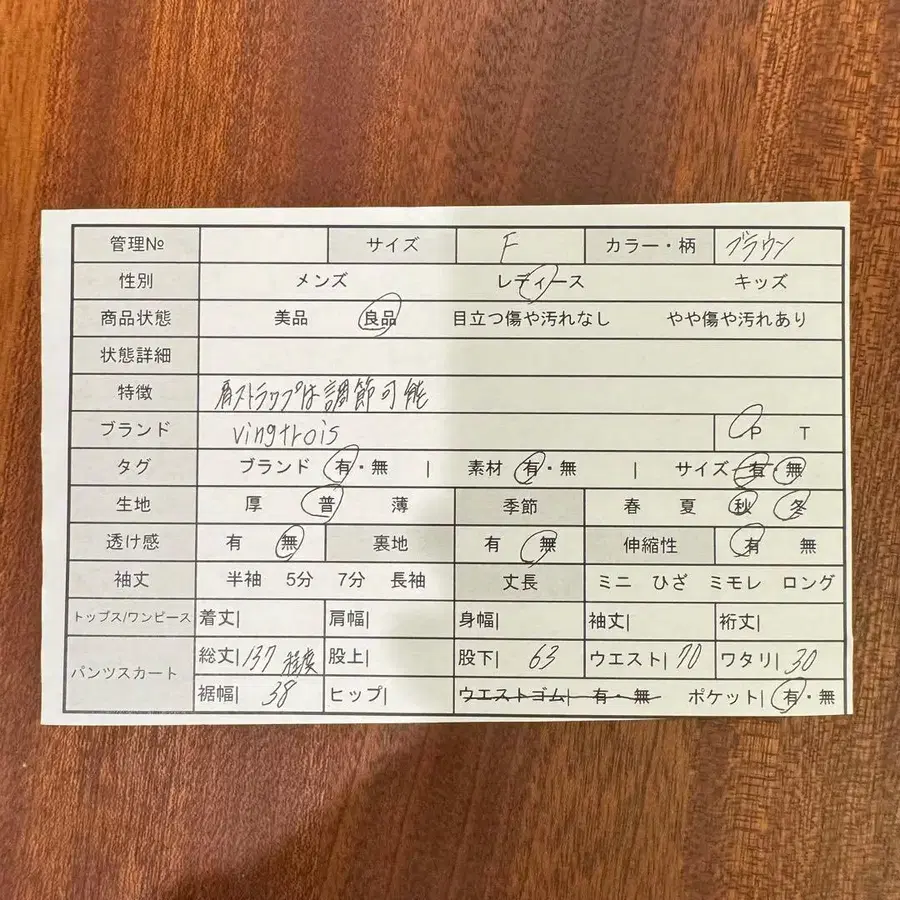 管理№ サイズ F カラー・柄 ブラウン
性別 メンズ レディース キッズ
商品状態 美品 良品 目立つ傷や汚れなし やや傷や汚れあり
状態詳細
特徴 肩ストラップは調節可能
ブランド vingtrois P T
タグ ブランド 有・無 | 素材 有・無 | サイズ 有・無
生地 厚 普 薄 季節 春 夏 秋 冬
透け感 有 無 裏地 有 無 伸縮性 有 無
袖丈 半袖 5分 7分 長袖 丈長 ミニ ひざ ミモレ ロング
トップス/ワンピース 着丈| 肩幅| 身幅| 袖丈| 裄丈|
パンツスカート 総丈| 137 程度 股上| 股下| 63 ウエスト| 70 ワタリ| 30
裾幅| 38 ヒップ| ウエストゴム| 有・無 ポケット| 有・無